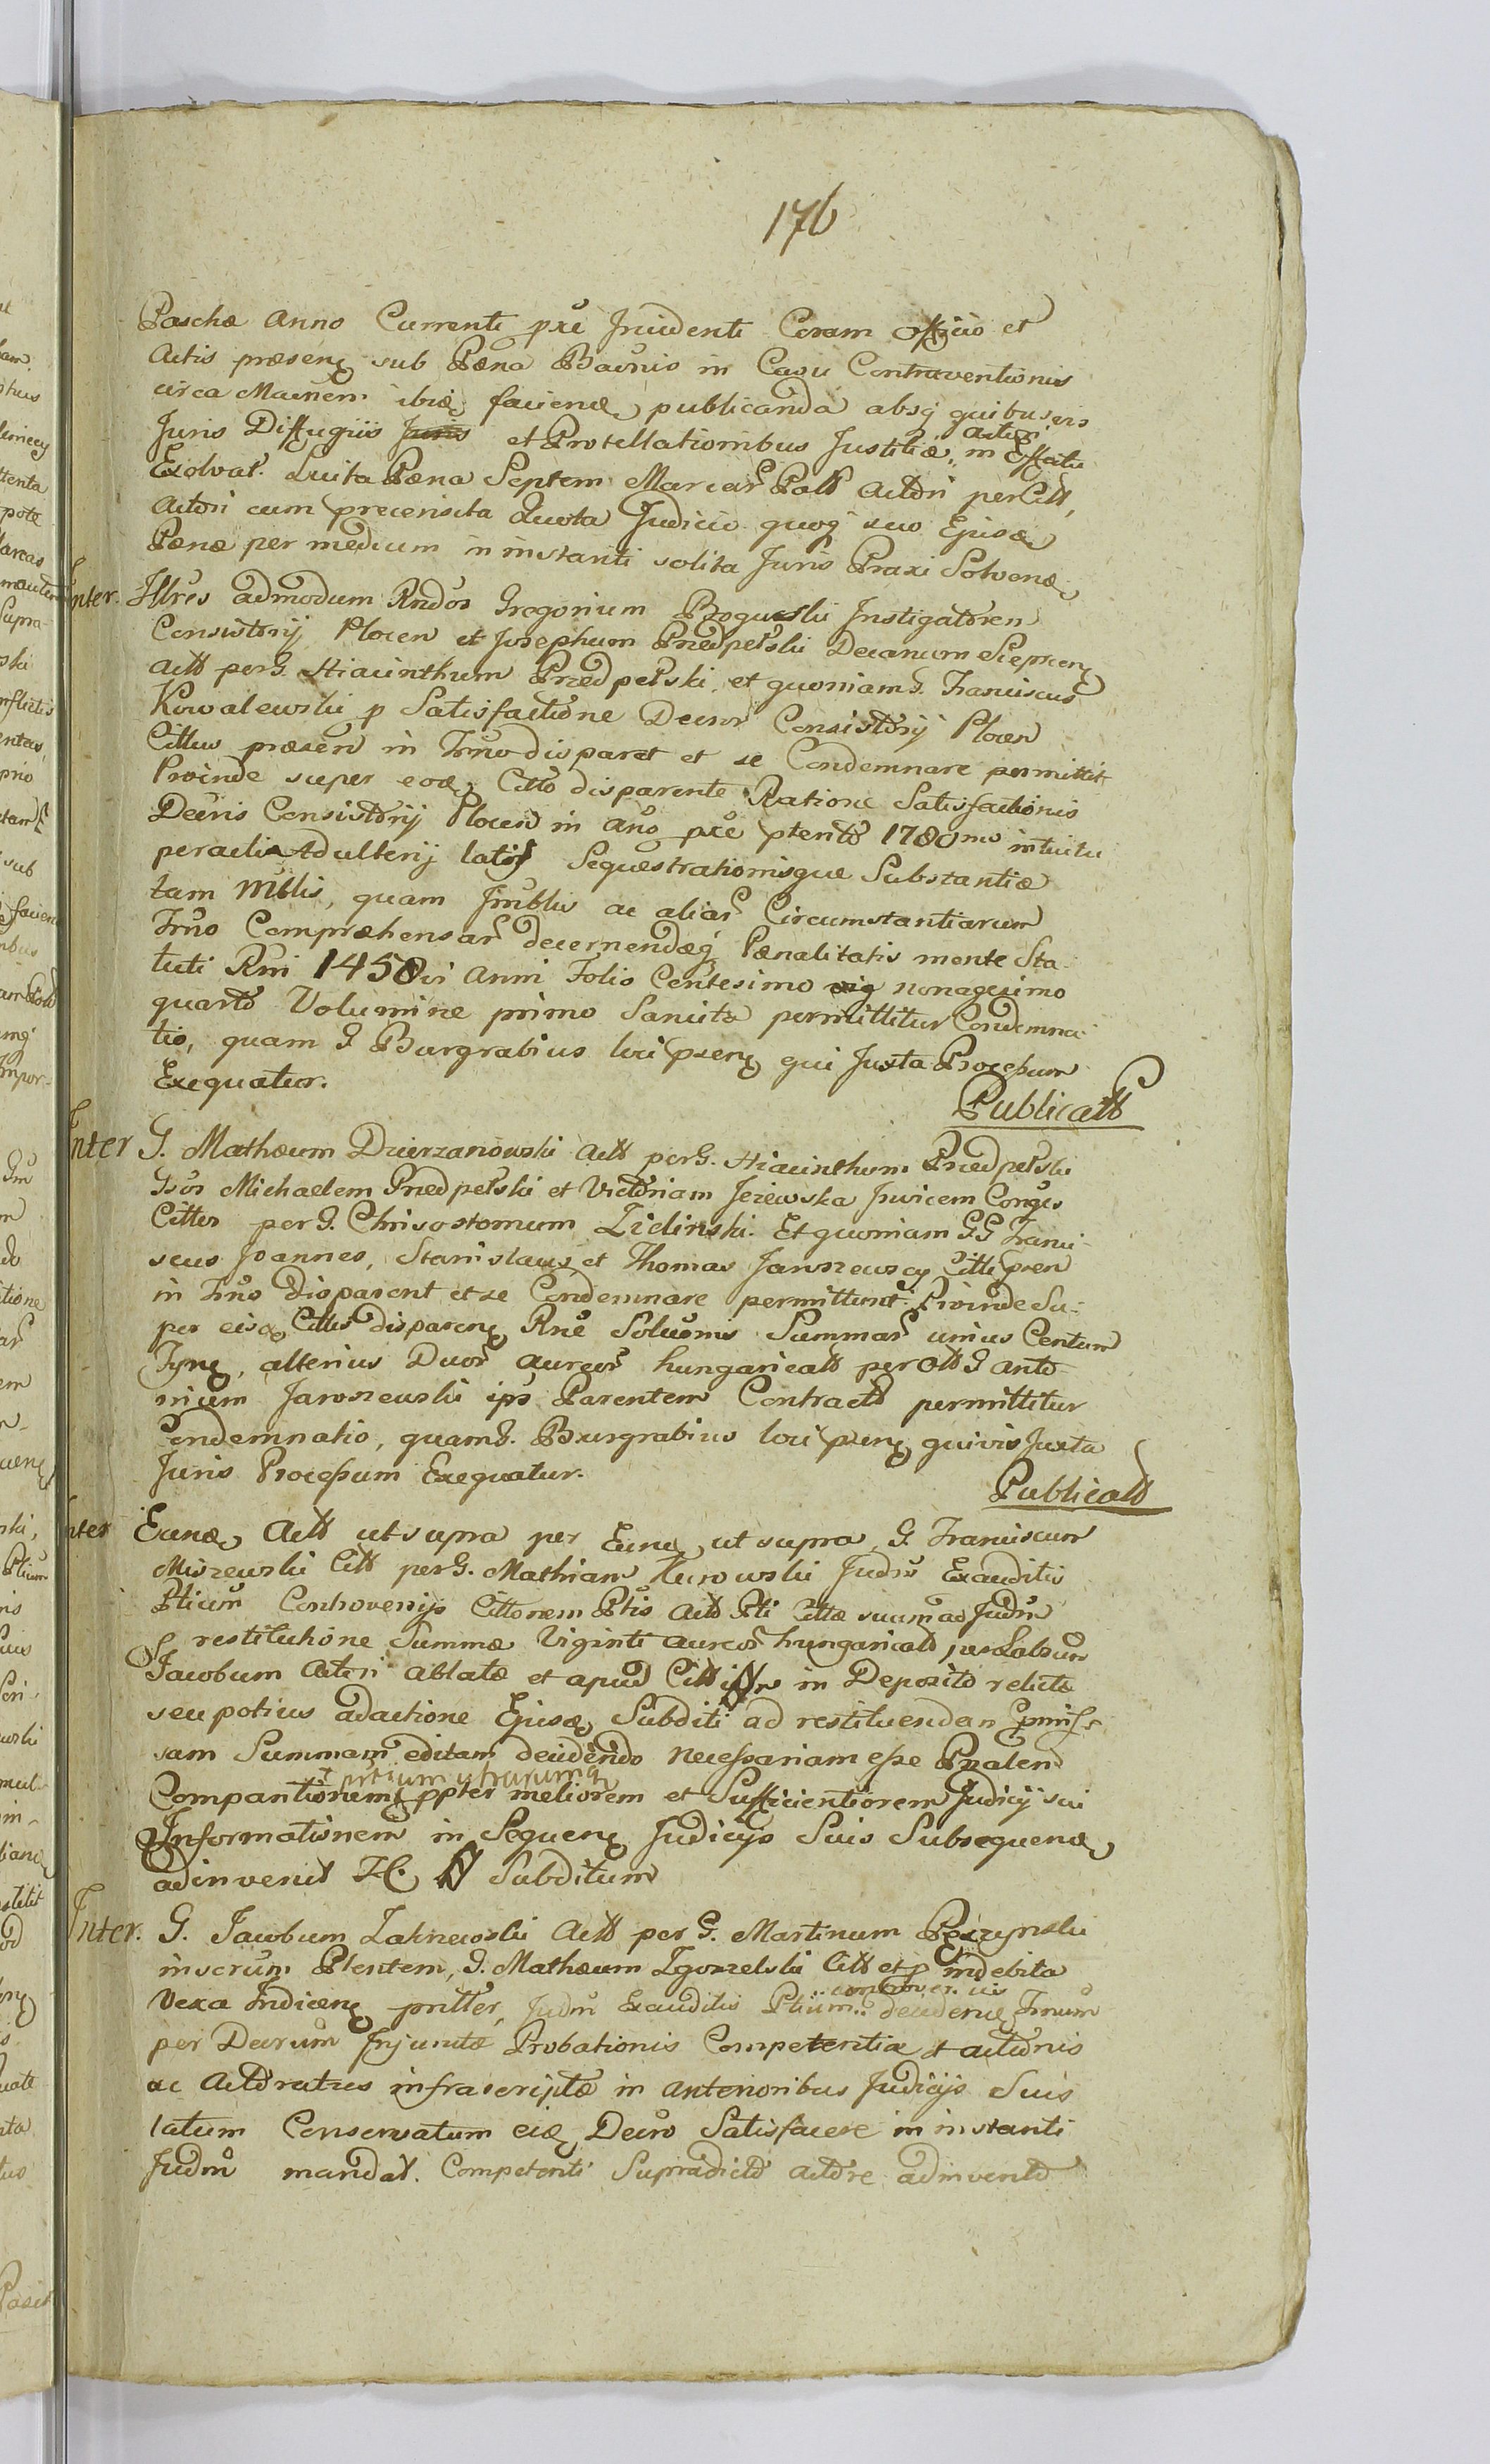 176
Paschæ Anno Currenti pxe Jncidenti Coram officio et
Actis præsenę sub Pæna Bañnis in Casu Contraventionis
circa Mañem ibię faciendę publicanda absq quibusvis
Juris Diffugiis Juris et Protellationibus Justitiæ actori in Effectu
Exolvat. Luita Pæna Septem Marcar Poll Actori per Citt,
Actori cum precensita Quota Judicio quoq suo Ejusdę
Pænæ per medium in instanti solita Juris Praxi Solvendę
Inter. Jllres admodum Rndos Gregorium Boguski Jnstigatorem
Consistorij Plocen et Josephum Przedpełski Decanum Sieprcenę
Actt per G. Hiacinthum Przedpełski et quoniam G. Franciscus
Kowalewski p Satisfactione Decror Consistorij Plocen
Cittus præsen in Trno disparet et se Condemnare permittit
Proinde super eodę Citto disparente Ratione Satisfactionis
Decris Consistorij Plocen in Año pxe ptento 1780mo intuitu
peracti Adulterij latis Sequestrationisque Substantiæ
tam Mblis, quam Jmblis ac aliar Circumstantiarum
Trno Compræhensar decernendæq Pænalitatis mente Sta-
tuti Rni 1458vi Anni Folio Centesimo nonagesimo
quarto Volumine primo Sancita permittitur Condemna-
tio, quam G Burgrabius loci psenę qui Juxta Processum
Exequatur.
Publicatt
Inter G. Mathæum Dzierzanowski Actt per G. Hiacinthum Przedpełski
Gsos Michaelem Przedpełski et Victoriam Jeżewska Jnvicem Conges
Cittos per G. Chrisostomum Zielinski. Et quoniam GG Franci-
scus Joannes, Stanislaus et Thomas Jaroszewscy Citti psen
in Trno Disparent et se Condemnare permittunt. Proinde Su-
per eisdę Cittis disparenę Rne Soluonis Summar unius Centum
Tynę, alterius Duor aureor hungaricatt per Ott G Anto-
nium Jaroszewski ips Parentem Contracto permittitur
Condemnatio, quam G. Burgrabius loci psenę quivis Juxta
Juris Processum Exequatur.
Publicatt
Inter Eundę Actt ut supra per Eunę ut supra, G. Franciscum
Miszewski Citt per G. Mathiam Kurowski Judm Exauditis
Ptium Controversijs Cittonem Ptis Actt Pti Cittæ suum ad Judm
p restitutione Summæ Viginti aureor hungaricatt, per Labsum
Jacobum Actori ablatæ et apud Citt in Deposito relicta
seu potius adactione Ejusdę Subditi ad restituendam pmis-
sam Summam editam decidendo necessariam esse Pxalend
ptium utrarumq
Comparitionemq ppter meliorem et Sufficientiorem Judicij sui
Jnformationem in Sequenę Judicijs Suis Subsequendę
adinvenit H. N Subditum
Inter. G. Jacobum Zakrzewski Actt per G. Martinum
inscrum Ptentem, G. Mathæum Zgorzelski Citt et p indebita
Vexa Jndicenę pntter, Judm Exauditis Ptium controver. iis decidenę Trnum
per Decrum Jnjunctæ Probationis Competentia et actionis
ac Actoratus infrascriptæ in Anterioribus Judicijs Suis
latum Conservatum eidę Decro Satisfacere in instanti
Judm mandat. Competenti Supradicto Actore adinvento